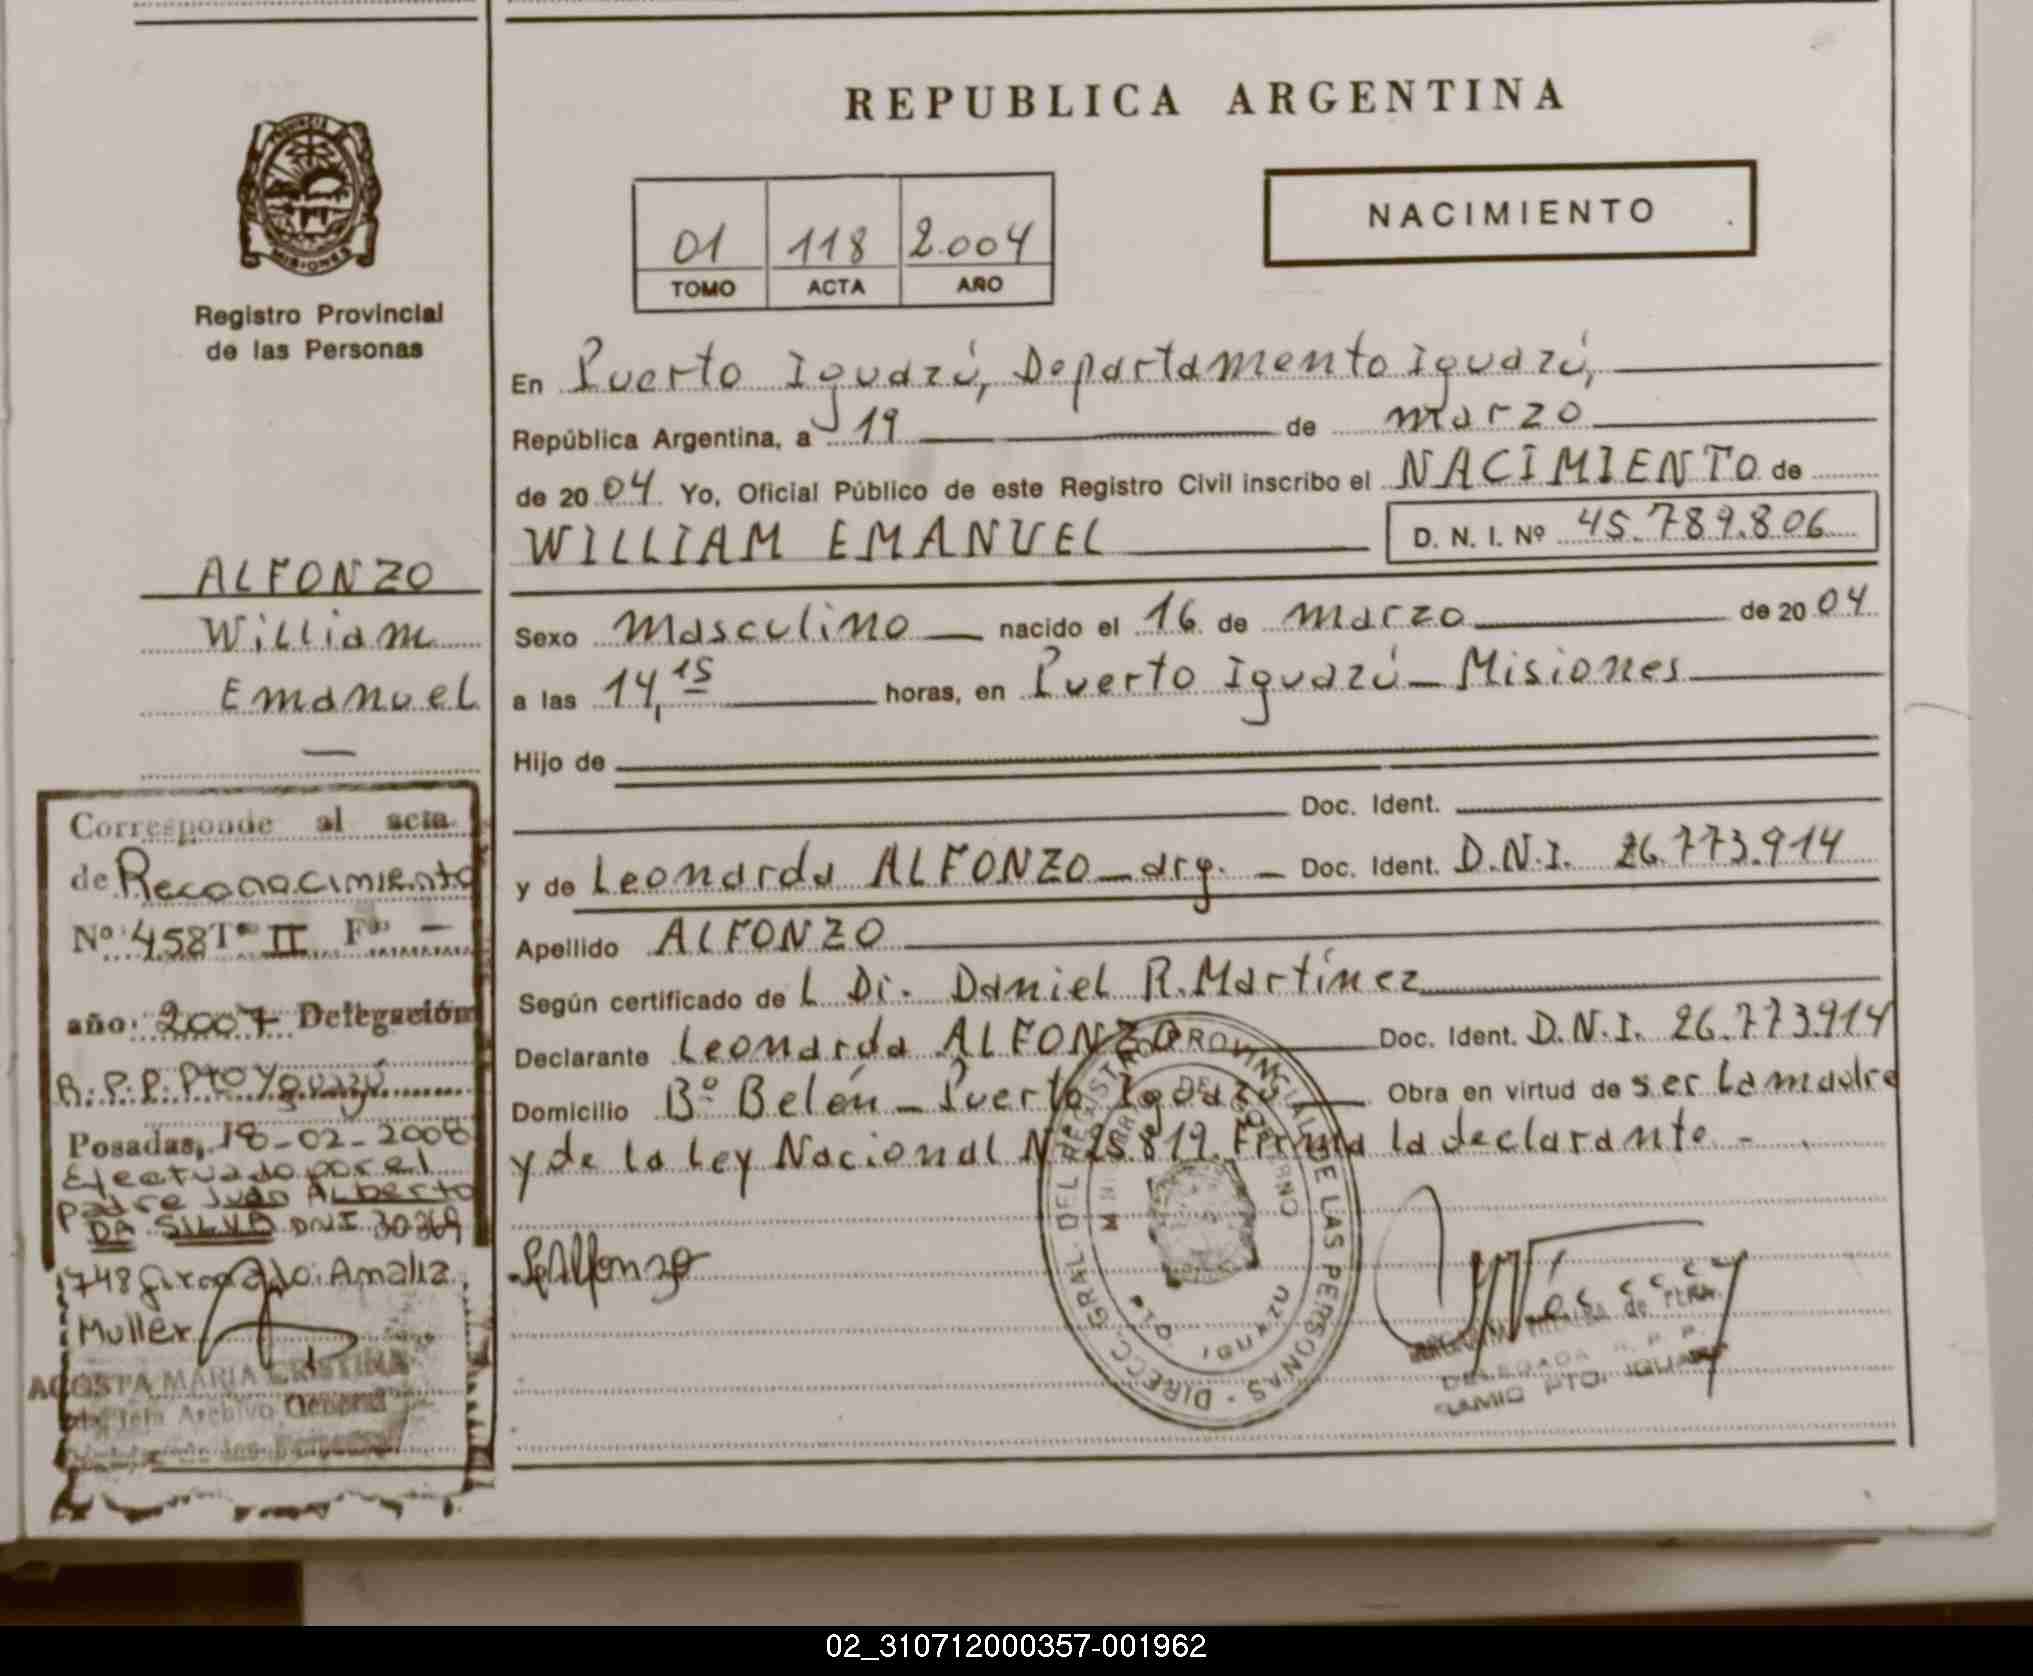 REPUBLICA ARGENTINA
NACIMIENTO
01 118 2.004
TOMO ACTA AÑO
PROVINCIA
MISIONES
Registro Provincial
de las Personas
En Puerto Iguazú, Departamento Iguazú,
República Argentina, a 19 de marzo
de 20 04 Yo, Oficial Público de este Registro Civil inscribo el NACIMIENTO de
WILLIAM EMANUEL D. N. I. Nº 45.789.806
Sexo masculino nacido el 16 de marzo de 20 04
a las 14,15 horas, en Puerto Iguazú - Misiones
Hijo de
Doc. Ident.
y de Leonarda ALFONZO - arg. - Doc. Ident. D.N.I. 26.773.914
Apellido ALFONZO
Según certificado de L Di. Daniel R. Martínez
Declarante Leonarda ALFONZO Doc. Ident. D.N.I. 26.773.914
Domicilio Bº Belén - Puerto Iguazú Obra en virtud de ser la madre
y de la Ley Nacional Nº 25.819. Firma la declarante -
LAlfonzo
DIRECC. GRAL. DEL REGISTRO PROVINCIAL DE LAS PERSONAS
DE GOBIERNO
PTO. IGUAZU
DELEGADA R. P. P.
PTO. IGUAZU
ALFONZO
William
Emanuel
Corresponde al acta
de Reconocimiento
Nº 458 Tº II Fº -
año: 2007 Delegación
R.P.P. Pto Yguazú
Posadas, 18-02-2008
Efectuado por el
padre Juan ALBERTO
DA SILVA DNI 30369
748 Amalia
Muller
ACOSTA MARIA CRISTINA
Archivo General
02_310712000357-001962